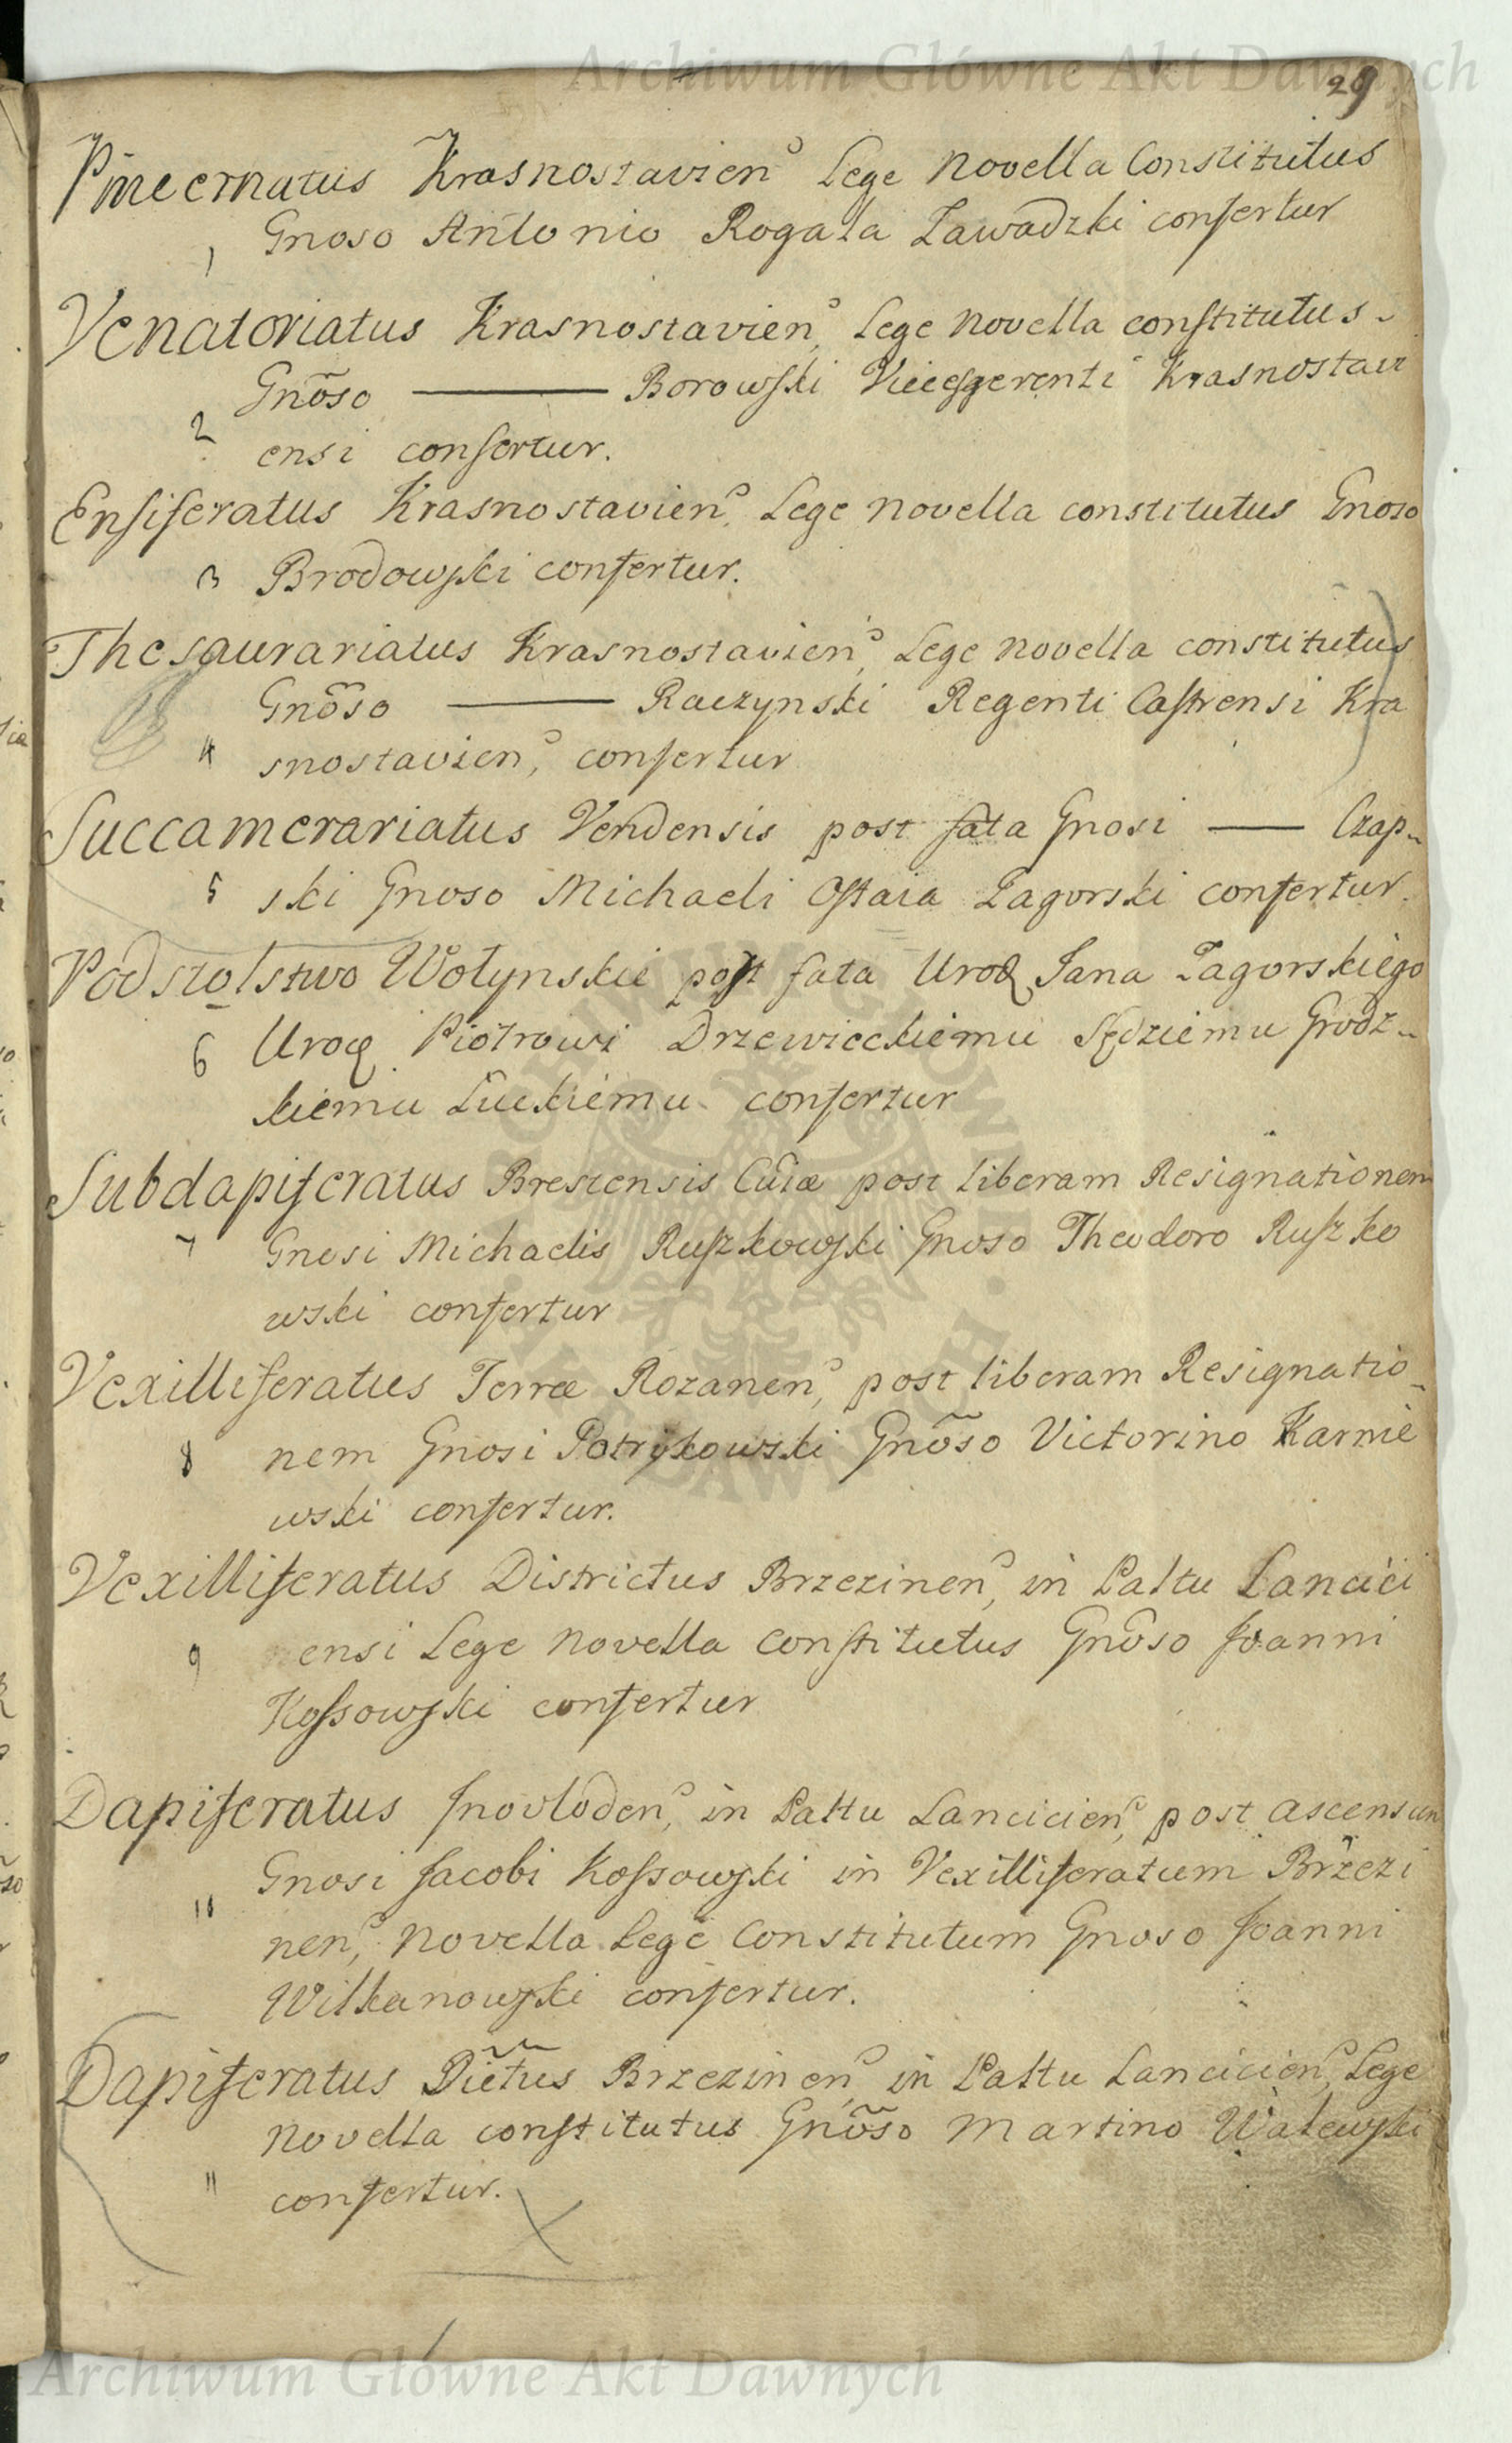 Archiwum Główne Akt Dawnych
29
Pincernatus Krasnostavien, Lege Novella Constitutus
1 Gnoso Antonio Rogala Zawadzki confertur
Venatoriatus Krasnostavien, Lege Novella constitutus
Gnõso ——— Borowski Vicesgerenti Krasnostavi
2 ensi confertur.
Ensiferatus Krasnostavien, Lege Novella constitutus Gnoso
3 Brodowski confertur.
Thesaurariatus Krasnostavien, Lege Novella constitutus
Gnõso ——— Raczynski Regenti Castrensi Kra
4 snostavien, confertur
Succamerariatus Vendensis post fata Gnosi —— Czap-
5 ski Gnoso Michaeli Ostaia Zagorski confertur.
Podstolstwo Wołynskie post fata Urod Jana Zagorskiego
6 Urod Piotrowi Drzewieckiemu Sędziemu Grodz-
kiemu Łuckiemu confertur
Subdapiferatus Brestensis Cuiæ post liberam Resignationem
7 Gnosi Michaelis Ruszkowski Gnoso Theodoro Ruszko
wski confertur
Vexilliferatus Terræ Rozanen, post liberam Resignatio-
8 nem Gnosi Potrykowski Gnõso Victorino Karnie
wski confertur.
Vexilliferatus Districtus Brzezinen, in Paltu Lancici
9 ensi Lege Novella Constitutus Gnõso Joanni
Kossowski confertur
Dapiferatus Inovloden, in Paltu Lancicien, post ascensum
Gnosi Jacobi Kossowski in Vexilliferatum Brzezi
10 nen, Novella Lege Constitutum Gnoso Joanni
Wilkanowski confertur.
Dapiferatus Dictus Brzezinen in Paltu Lancicien, Lege
Novella constitutus Gnõso Martino Walewski
11 confertur.
Archiwum Główne Akt Dawnych